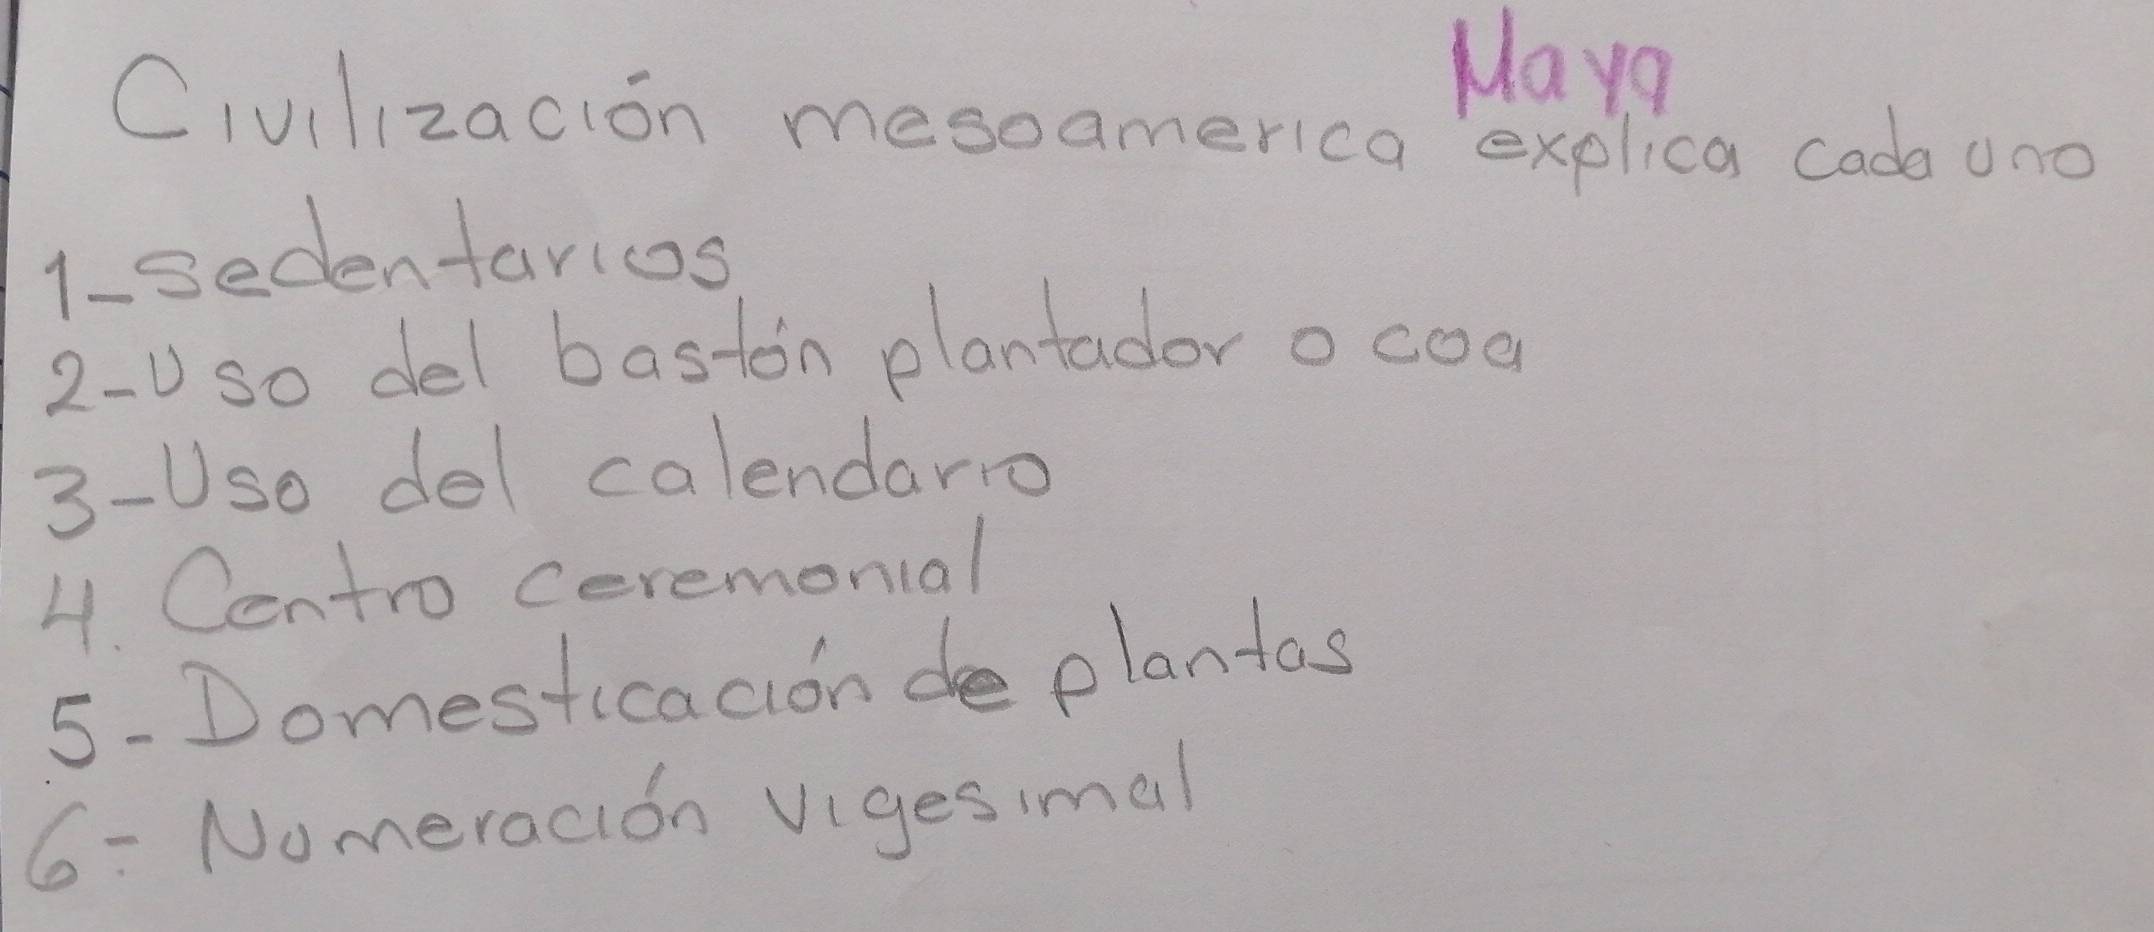 Maya
Civilización mesoamerica explica cada uno
1-sedentarios
2-Uso del bastón plantador o coa
3-Uso del calendario
4. Centro ceremonial
5-Domesticación de plantas
6- Numeración vigesimal